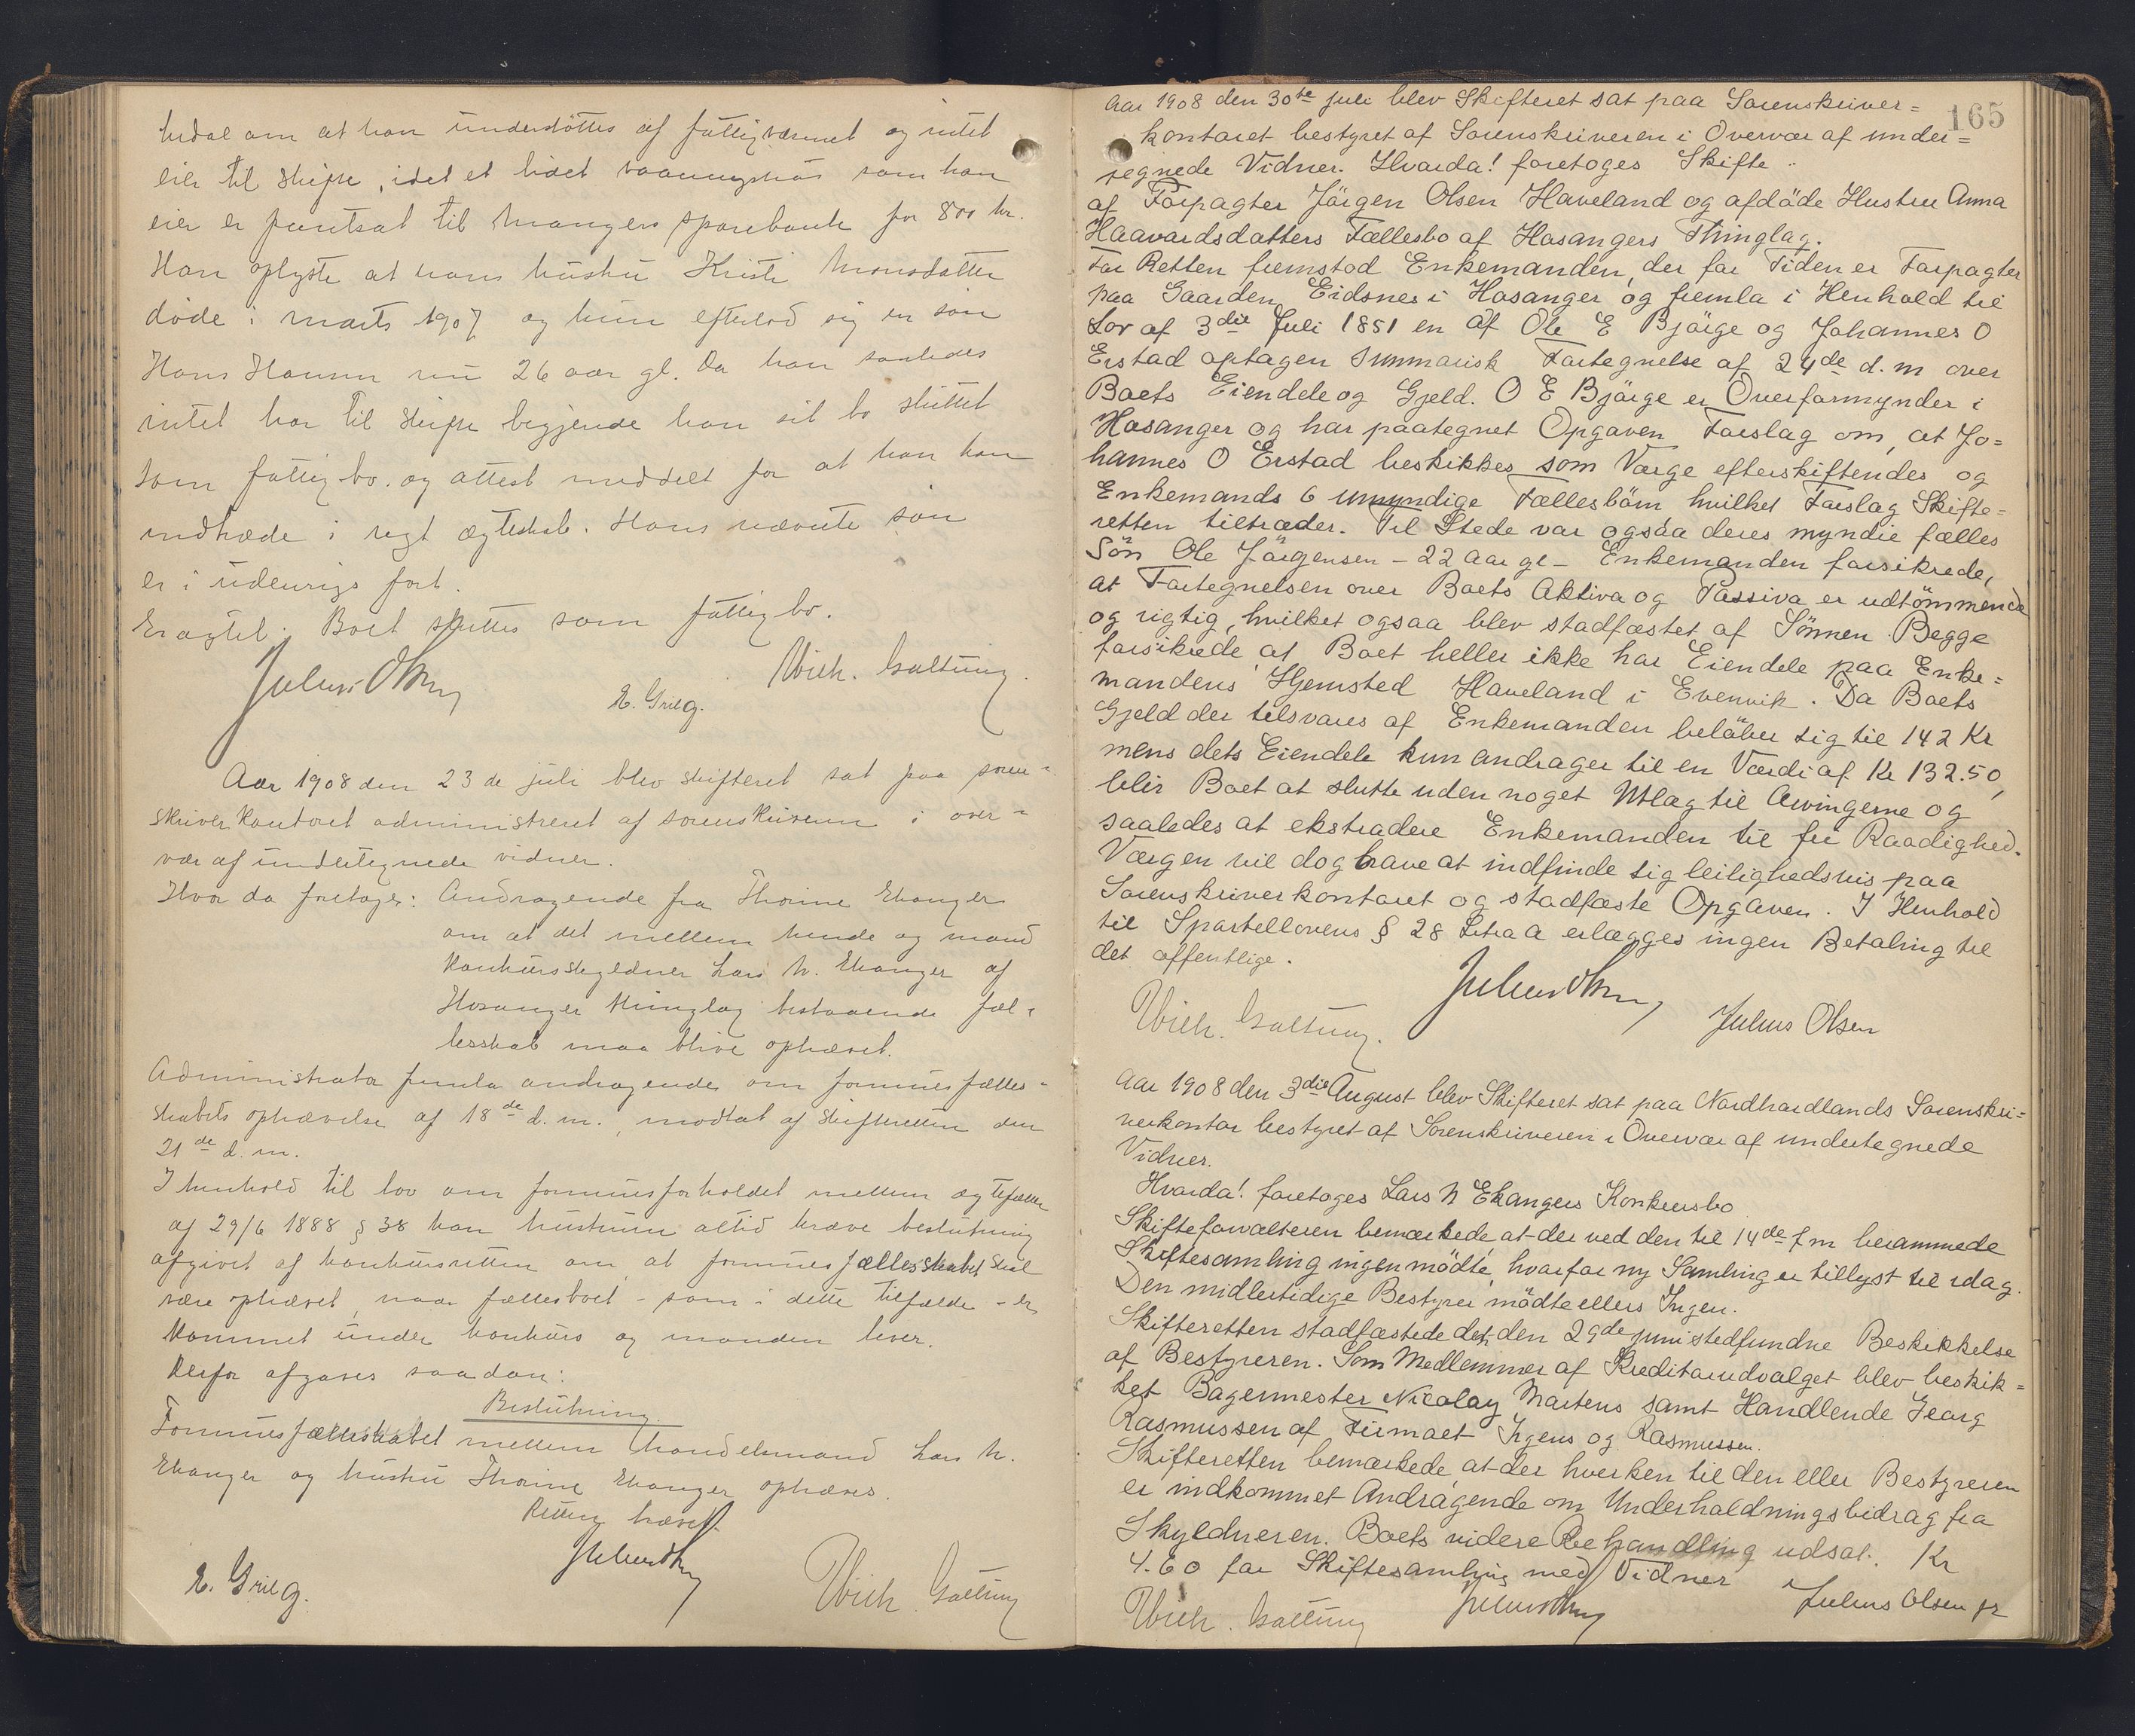 om at han understøttes af fattigvæsenet og intet
eier til skifte, idet et lidet vaaningshus som han
eier er pantsat til Mangers sparebank for 800 kr.
Han oplyste at hans hustru Kristi Monsdatter
døde i marts 1907 og hun efterlod sig en søn
Hans Hansen nu 26 aar gl. Da han saaledes
intet har til skifte begjærede han sit bo sluttet
som fattigbo og attest meddelt for at han kan
indtræde i nyt ægteskab. Hans nævnte søn
er i udenrigs fart.
Eragtet: Boet sluttes som fattigbo.
Julius Olsen
E. Grieg. Wilh. Galtung.
Aar 1908 den 23de juli blev skifteret sat paa soren=
skriverkontoret administreret af sorenskriveren i over=
vær af undertegnede vidner.
Hvor da foretoges: Andragende fra Thorine Ekanger
om at det mellem hende og mand
konkursskyldner Lars N. Ekanger af
Hosanger thinglag bestaaende fæl=
lesskab maa blive ophævet.
Administrator fremla andragende om formuesfælles=
skabets ophævelse af 18de d.m., modtat af skifteretten den
21de d.m.
I henhold til lov om formuesforholdet mellem ægtefæller
af 29/6 1888 § 38 kan hustruen altid kræve beslutning
afgivet af konkursretten om at formuesfællesskabet skal
være ophævet, naar fællesboet – som i dette tilfælde – er
kommet under konkurs og manden lever.
Derfor afgaves saadan:
Beslutning.
Formuesfællesskabet mellem handelsmand Lars N.
Ekanger og hustru Thorine Ekanger ophæves.
Retten hævet.
Julius Olsen
E. Grieg. Wilh. Galtung
165
Aar 1908 den 30te Juli blev Skifteret sat paa Sorenskriver=
kontoret bestyret af Sorenskriveren i Overvær af under=
tegnede Vidner. Hvorda! foretoges Skifte
af Forpagter Jörgen Olsen Haveland og afdöde Hustru Anna
Haavardsdatters Fællesbo af Hosangers Thinglag.
For Retten fremstod Enkemanden, der for Tiden er Forpagter
paa Gaarden Eidsnes i Hosanger og fremla i Henhold til
Lov af 3die Juli 1851 en af Ole E Bjørge og Johannes O
Erstad optagen Summarisk Fortegnelse af 24de d.m over
Boets Eiendele og Gjeld. O E Bjørge er Overformynder i
Hosanger og har paategnet Opgaven Forslag om, at Jo=
hannes O Erstad beskikkes som Værge efterskiftendes og
Enkemands 6 umyndige Fællesbörn, hvilket Forslag Skifte=
retten tiltræder. Til Stede var ogsaa deres myndie fælles
Sön Ole Jörgensen – 22 aar gl – Enkemanden forsikrede,
at Fortegnelsen over Boets Aktiva og Passiva er udtömmende
og rigtig, hvilket ogsaa blev stadfæstet af Sönnen. Begge
forsikrede at Boet heller ikke har Eiendele paa Enke=
mandens Hjemsted Haveland i Evenvik. Da Boets
Gjeld der tilsvares af Enkemanden belöber sig til 142 Kr
mens dets Eiendele kun andrager til en Værdi af Kr 132.50,
blir Boet at slutte uden noget Utlæg til Arvingerne og
saaledes at ekstradere Enkemanden til fri Raadighed.
Værgen vil dog have at indfinde sig leilighedsvis paa
Sorenskriverkontoret og stadfæste Opgaven. I Henhold
til Sportellovens § 28 Litra a erlægges ingen Betaling til
det offentlige.
Julius Olsen
Wilh. Galtung. Julius Olsen
Aar 1908 den 3die August blev Skifteret sat paa Nordhordlands Sorenskri=
verkontor bestyret af Sorenskriveren i Overvær af undertegnede
Vidner.
Hvorda! foretoges Lars N Ekangers Konkursbo
Skifteforvalteren bemærkede at der ved den til 14de f.m berammede
Skiftesamling ingen mödte, hvorfor ny Samling er tillyst til idag.
Den midlertidige Bestyrer mödte ellers Ingen.
Skifteretten stadfæstede det den 29de juni stedfundne Beskikkelse
af Bestyreren. Som Medlemmer af Kreditorudvalget blev beskik=
ket Bagermester Nicolay Martens samt Handlende Georg
Rasmussen af Firmaet Irgens og Rasmussen.
Skifteretten bemærkede at der hverken til den eller Bestyreren
er indkommet Andragende om Underholdningsbidrag fra
Skyldneren. Boets videre Behandling udsat. Kr
4.60 for Skiftesamling med Vidner
Julius Olsen
Wilh. Galtung Julius Olsen jr